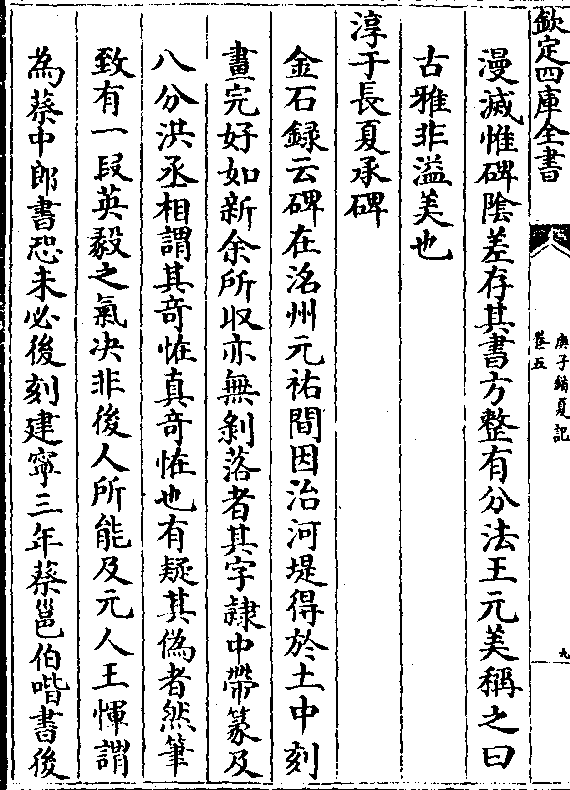 欽定四庫全書
庚子銷夏記
卷五
九
漫滅惟碑陰差存其書方整有分法王元美稱之曰
古雅非溢美也
淳于長夏承碑
金石録云碑在洺州元祐間因治河堤得於土中刻
畫完好如新余所収亦無剝落者其字隷中帶篆及
八分洪丞相謂其竒恠真竒恠也有疑其偽者然筆
致有一段英毅之氣决非後人所能及元人王惲謂
為蔡中郎書恐未必後刻建寧三年蔡邕伯喈書後